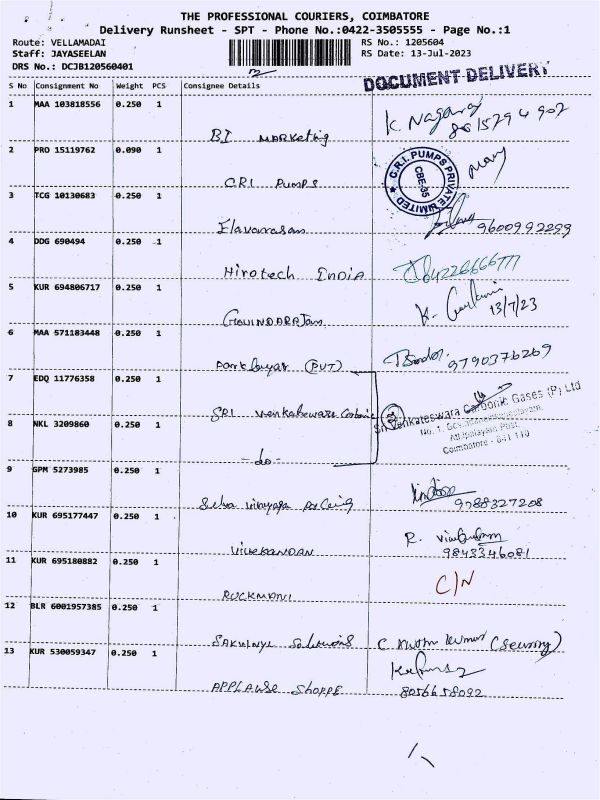 THE PROFESSIONAL COURIERS, COIMBATORE
Delivery Runsheet - SPT - Phone No.:0422-3505555 - Page No.:1
Route: VELLAMADAI
RS No.: 1205604
Staff: JAYASEELAN
RS Date: 13-Jul-2023
DRS No.: DCJB120560401
DOCUMENT DELIVERY
S No Consignment No Weight PCS Consignee Details
1 MAA 103818556 0.250 1
BI MARKETING
K. Nagaraj
2 PRO 15119762 0.090 1
CRI PUMPS
C.R.I. PUMPS PRIVATE LIMITED
CBE-35
3 TCG 10130683 0.250 1
Elavarasan
9600992299
4 DDG 690494 0.250 1
Hirotech INDIA
5 KUR 694806717 0.250 1
GOVINDARAJan
13/7/23
6 MAA 571183448 0.250 1
(PVT)
9790376269
7 EDQ 11776358 0.250 1
SRI venkateswara Carbonic
Sri Venkateswara Carbonic Gases (P) Ltd
Attipalayam Post,
Coimbatore - 641 110
8 NKL 3209860 0.250 1
-do-
9 GPM 5273985 0.250 1
Selva vinayaga
9788327208
10 KUR 695177447 0.250 1
VIVEKANDAN
R.
9843346081
11 KUR 695180882 0.250 1
RUCKMANI
C/N
12 BLR 6001957385 0.250 1
Solutions
13 KUR 530059347 0.250 1
APPLAUSE Shoppe
8056658092